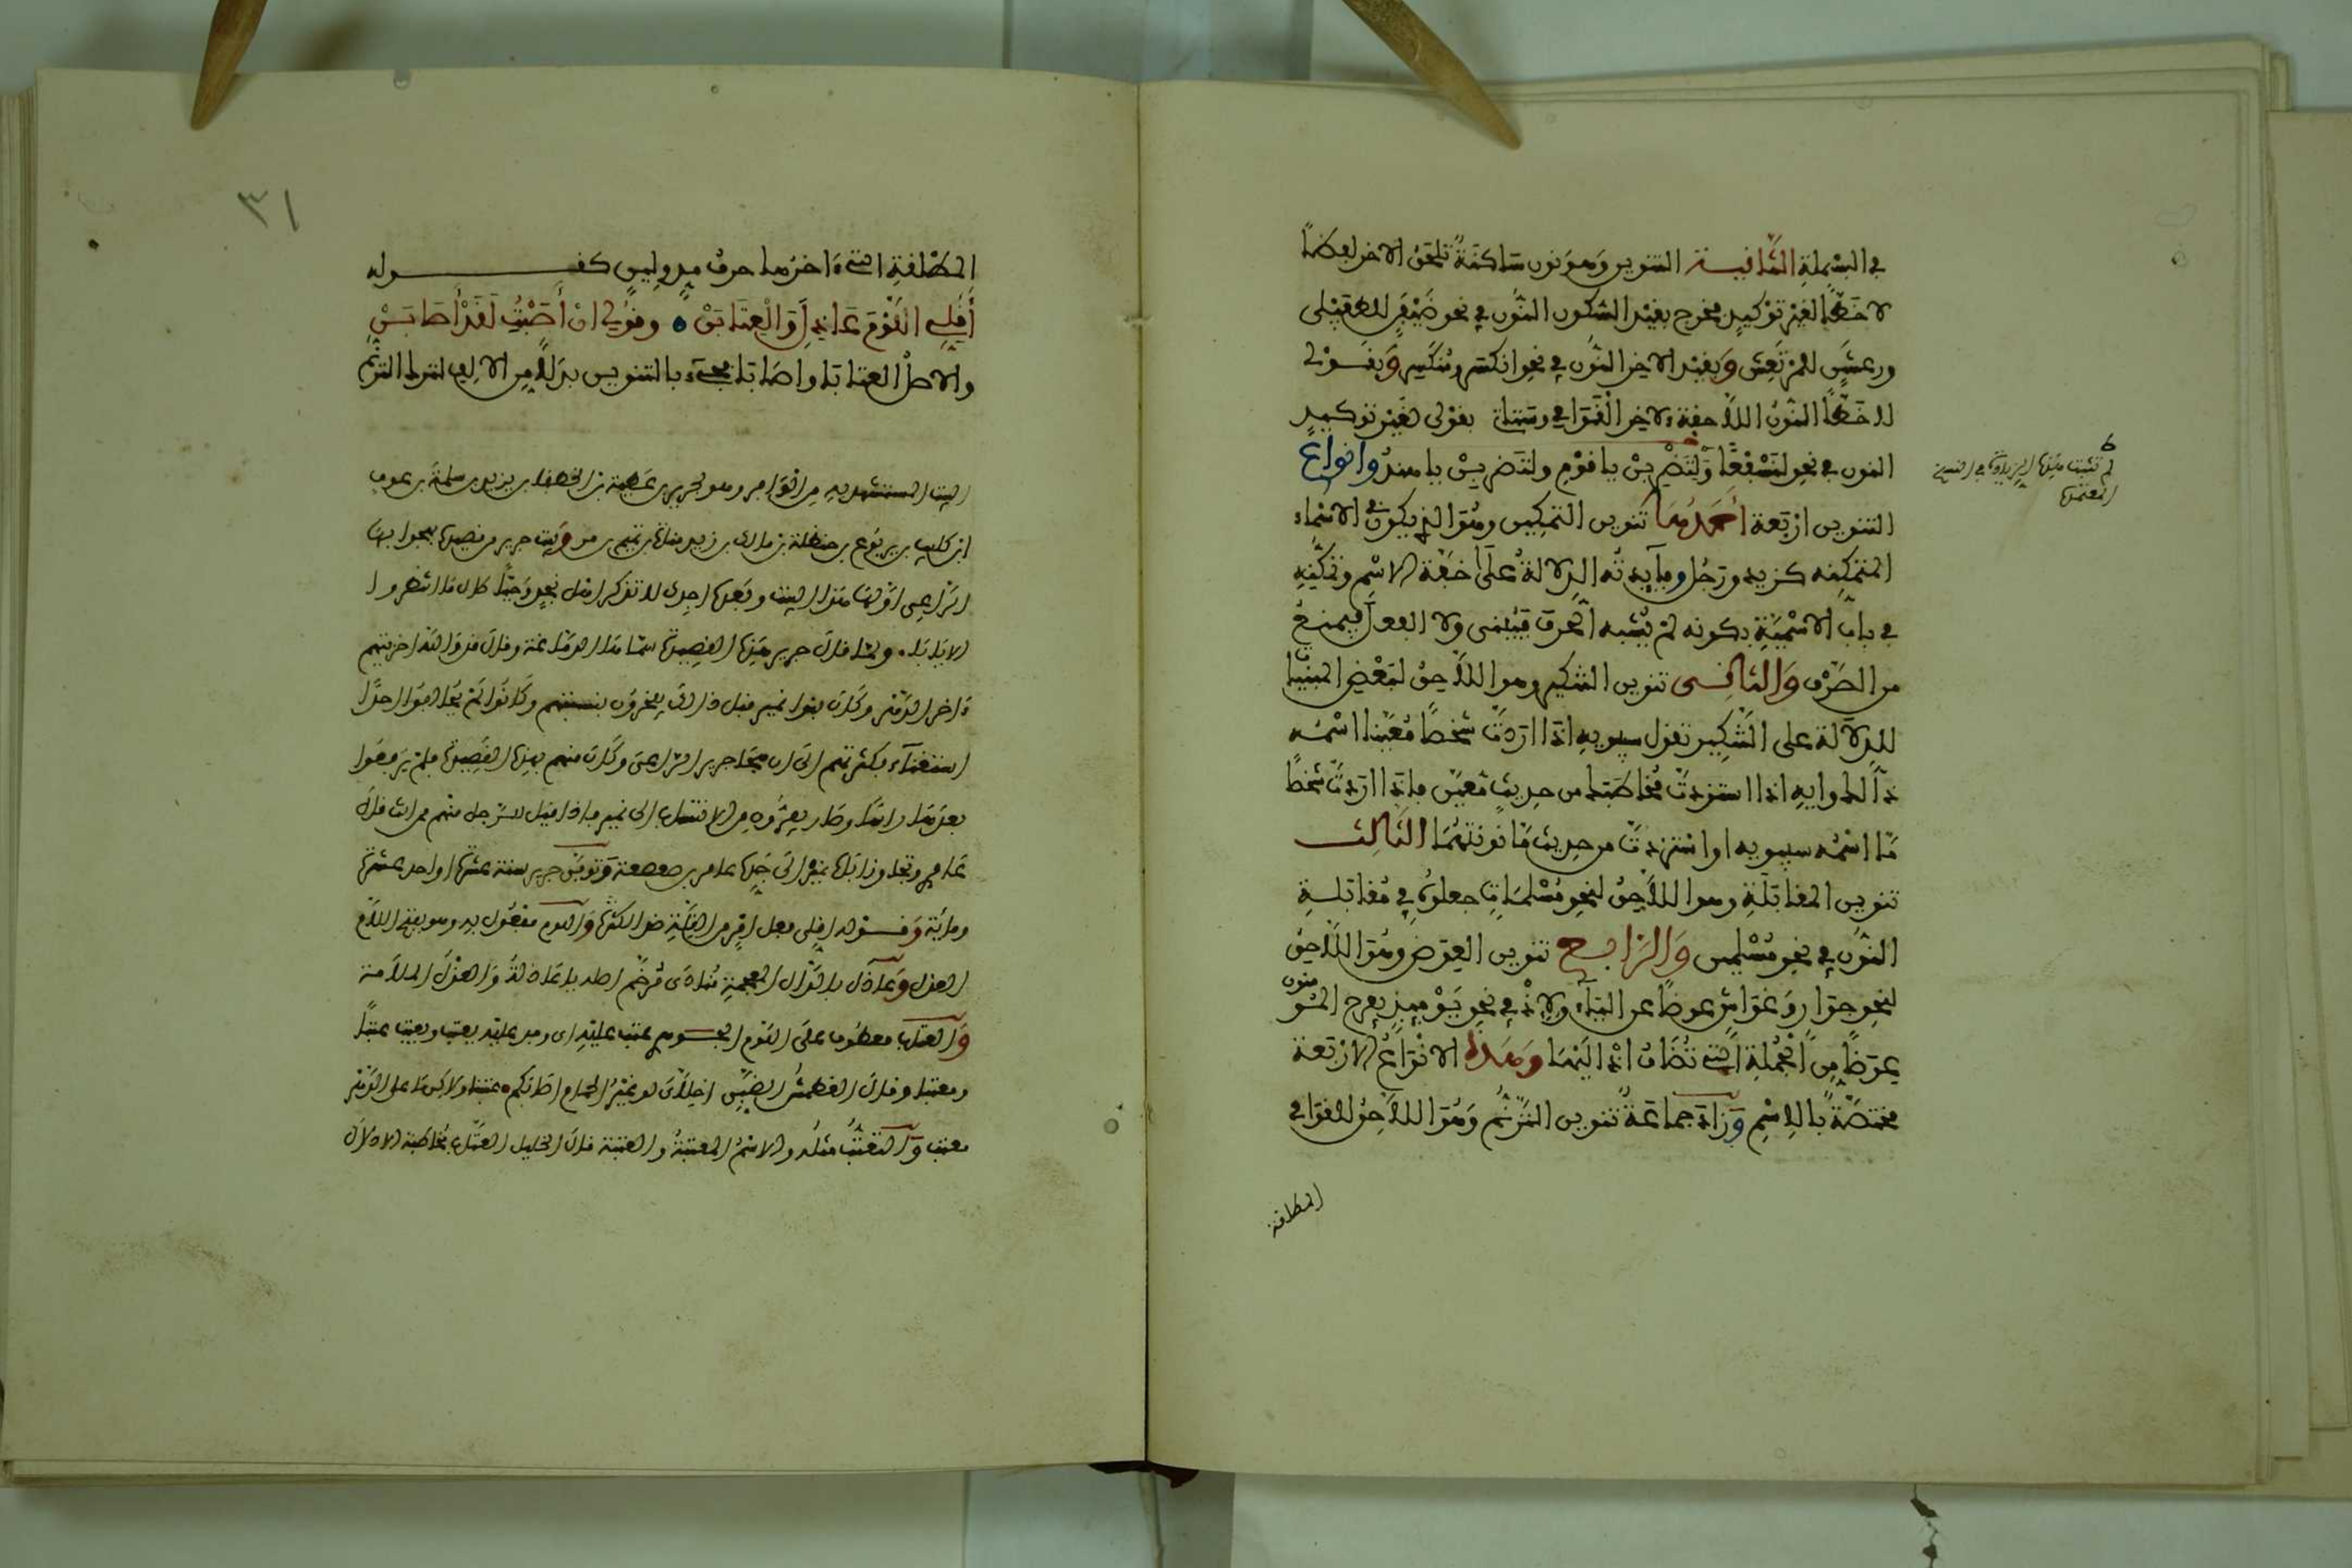 في البسملة الثانية التنوين وهو نون ساكنة تلحق الاخر لفظا
لا خطا لغير توكيد فخرج بقيد السكون النون في نحو ضيفن للطفيلي
ورعشن للمرتعش وبقيد الاخر النون في نحو انكسر ومنكسر وبقولى
لا خطا النون اللاحقة لاخر القوافي وستاتي بقولى لغير توكيد
النون في نحو لنسفعا ولتضربن يا قوم ولتضربن يا هند وانواع
التنوين اربعة احدها تنوين التمكين وهو الذي يكون في الاسماء
المتمكنه كزيد ورجل وفايدته الدلالة على خفة الاسم وتمكنه
في باب الاسمية بكونه لم يشبه الحرف فيبنى ولا الفعل فيمنع
من الصرف والثاني تنوين التنكير وهو اللاحق لبعض المبنيات
للدلالة على التنكير تقول سيبويه اذا اردت شخصا معينا اسمه
ذلك وايه اذا استزدت مخاطبك من حديث معين فاذا اردت شخصا
ما اسمه سيبويه او استزدت من حديث ما نونتهما الثالث
تنوين المقابلة وهو اللاحق لنحو مسلمات جعلوه في مقابلة
النون في نحو مسلمين والرابع تنوين العوض وهو اللاحق
لنحو جوار وغواش عوضا عن الياء ولاذ في نحو يومئذ يفرح المؤمنون
عوضا من الجملة التي تضاف اذ اليها وهذه الانواع الاربعة
مختصة بالاسم وزاد جماعة تنوين الترنم وهو اللاحق للقوافي
المطلقة
لم تثبت هذه الزيادة في النسخ
المعتمدة
٣١
المطلقة التي ءاخرها حرف مد ولين كقوله
أقلي اللوم عاذل والعتابن وقولي ان أصبت لقد أصابن
والاصل العتابا واصابا فجيء بالتنوين بدلا من الالف لترك الترنم
البيت المستشهد به من الوافر وهو لجرير بن عطية بن الخطفا بن يزيد بن سلمة بن عوف
ابن كليب بن يربوع بن حنظلة بن مالك بن زيد مناة بن تميم بن مر وبيت جرير من قصيدة يهجوا بها
الراعي اولها هذا البيت وبعده اجدك لا تذكر اهل نجد وحيا طال ما انتظروا
الايابا ولما قال جرير هذه القصيدة
وكان بنوا نمير قبل ذالك يفخرون بنسبتهم
الى ان هجا جرير الراعي وكان منهم بهذه القصيدة فلم يرفعوا
بعدها راسا
عامري بن صعصعة وتوفي جرير سنة عشرة او احد عشرة
ومائة وقوله اقلي فعل امر من القلة ضد الكثرة واللوم مفعول به وهو بفتح اللام
العذل وعاذل بالذال المعجمة منادى مرخم اصله يا عاذلة والعذل الملامة
والعتاب معطوف على اللوم الجوهري عتب عليه اى وجد عليه يعتب ويعتب عتبا
ومعتبا وقال الغطمش الضبي اخلاى لو غير الحمام اصابكم عتبت ولاكن ما على الدهر
معتب والتعتب مثله والاسم المعتبة والمعتبة قال الخليل العتاب مخاطبة الادلال